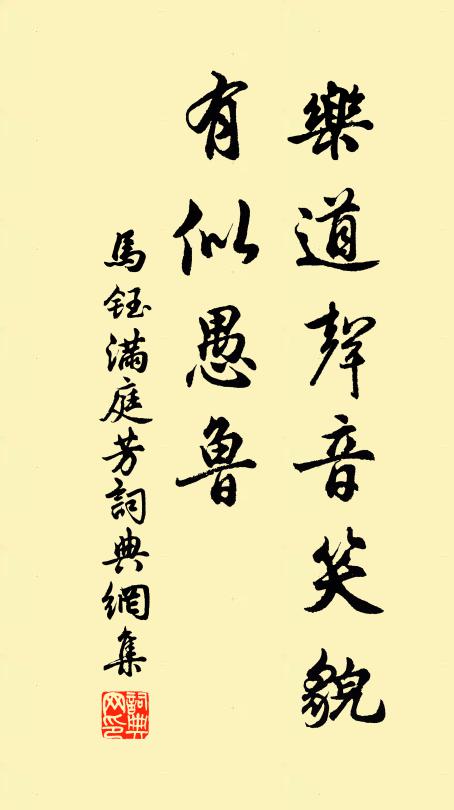 樂道聲音笑貌
有似愚魯
馬鈺滿庭芳詞典網集
詞典网印